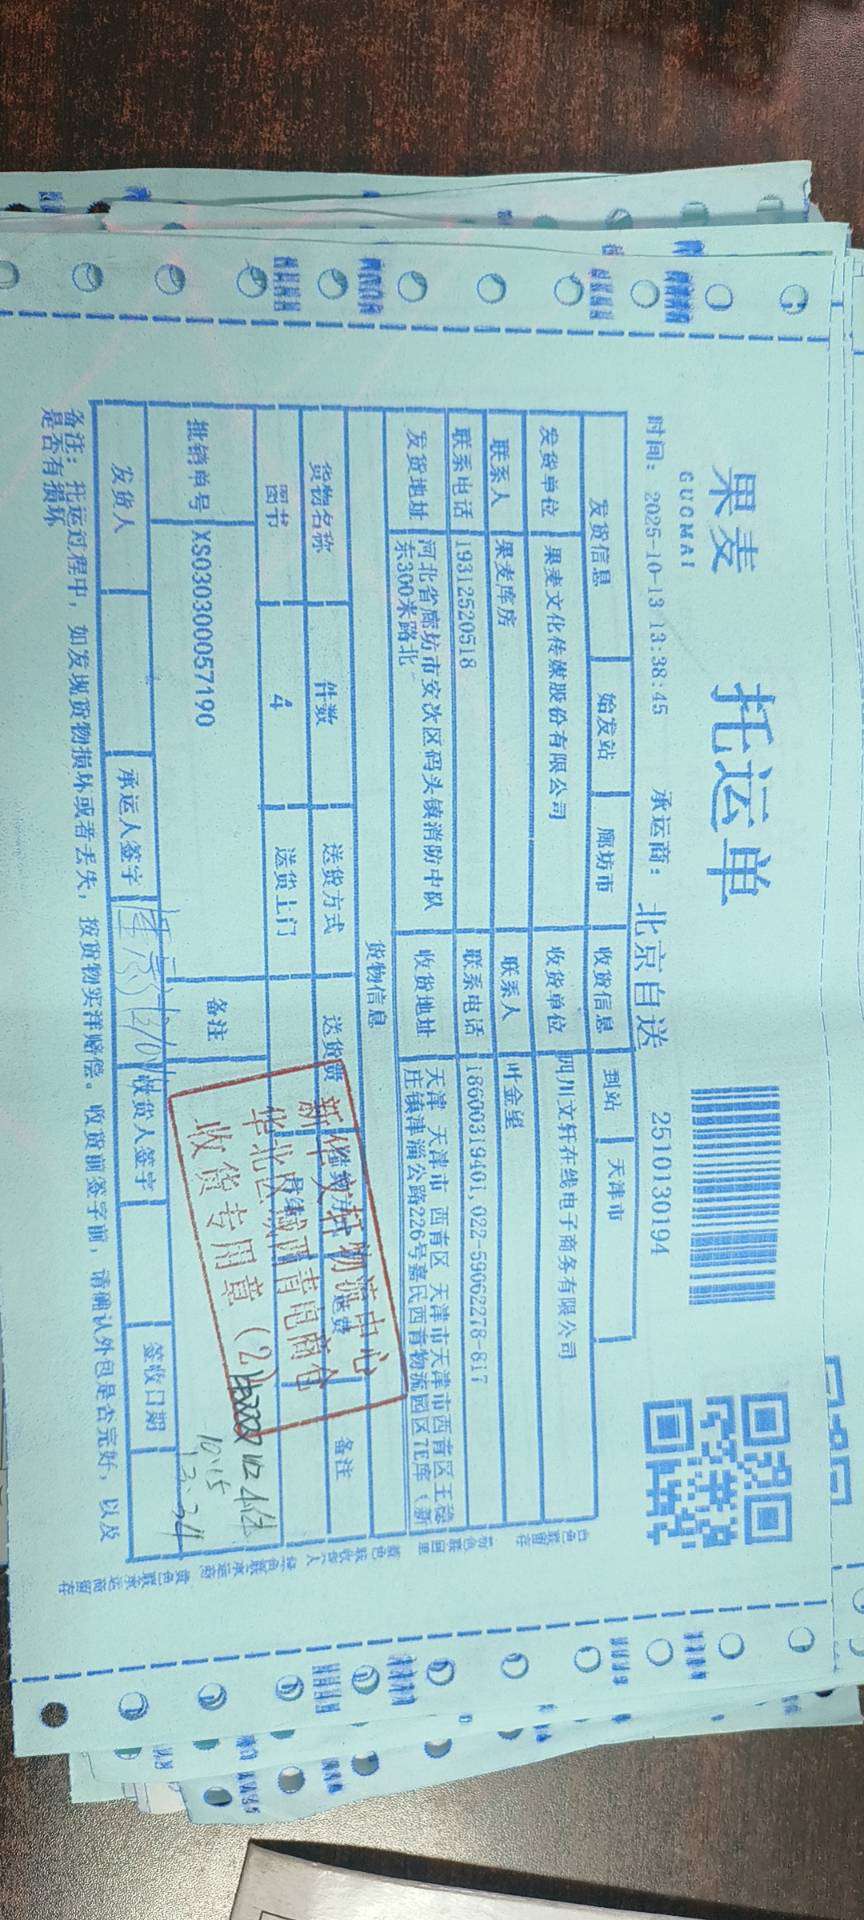 果麦
GUOMAI
托运单
时间： 2025-10-13 13:38:45 承运商： 北京自送 2510130194
发货信息 始发站 廊坊市 收货信息 到站 天津市
发货单位 果麦文化传媒股份有限公司 收货单位 四川文轩在线电子商务有限公司
联系人 果麦库房 联系人 叶金望
联系电话 19312520518 联系电话 18600319401,022-59062278-817
发货地址 河北省廊坊市安次区码头镇消防中队
东300米路北 收货地址 天津 天津市 西青区 天津市天津市西青区王稳
庄镇津淄公路226号嘉民西青物流园区7E库（新
货物信息
货物名称 件数 送货方式 送货费 备注
图书 4 送货上门
批销单号 XS030300057190 备注
新华文轩物流中心
华北区域西青电商仓
收货专用章(2)
10.15
13:34
发货人 承运人签字 收货人签字 签收日期
备注：托运过程中，如发现货物损坏或者丢失，按货物实洋赔偿。收货前签字前，请确认外包是否完好，以及
是否有损坏